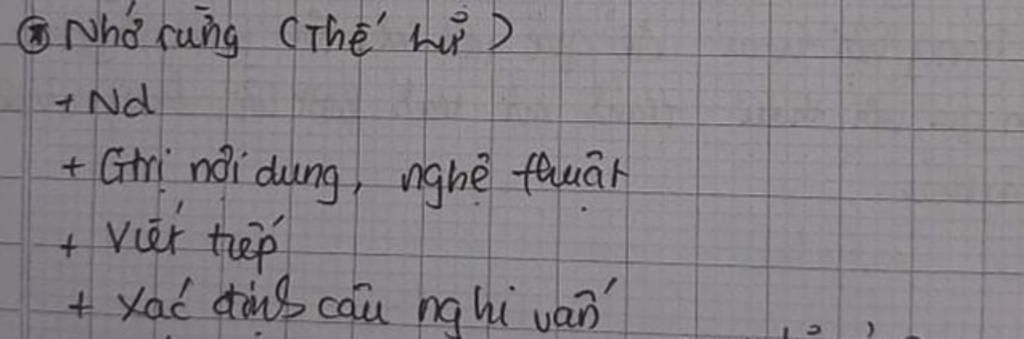 Nhớ rừng (Thế Lữ)
+ Nd
+ Gtrị nội dung, nghệ thuật
+ Viết tiếp
+ Xác định câu nghi vấn